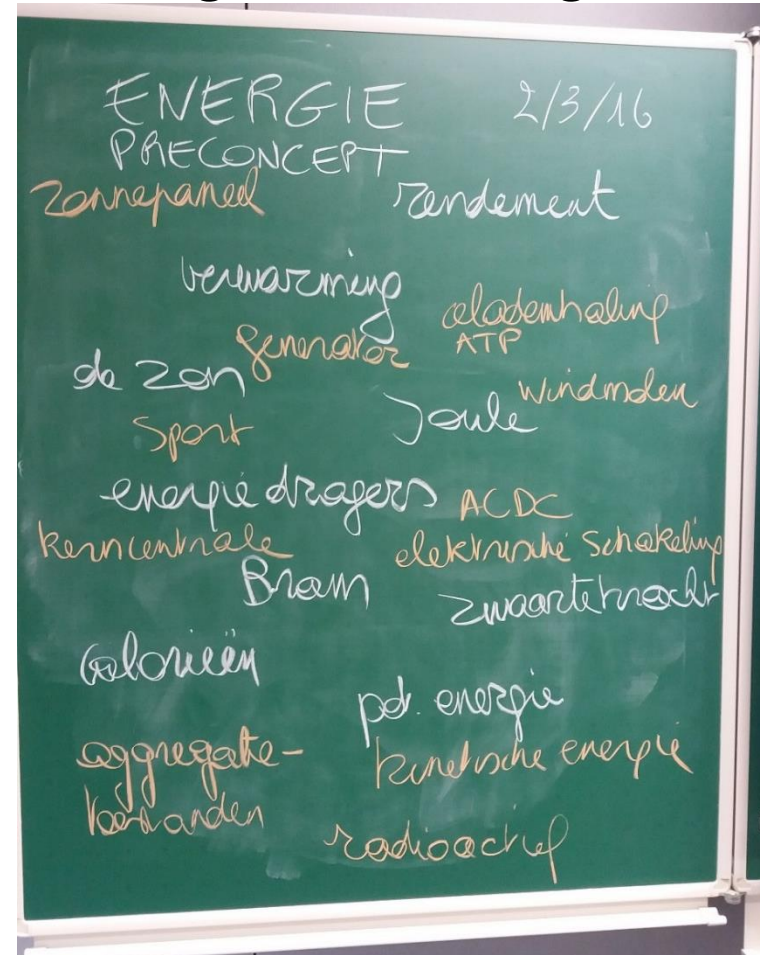 ENERGIE 2/3/16
PRECONCEPT
zonnepaneel rendement
verwarming
generator ademhaling
ATP
de zon windmolen
Sport Joule
energie dragers ACDC
kerncentrale elektrische schakeling
Bram zwaartekracht
Calorieën
pot. energie
aggregatie- kinetische energie
toestanden
radioactief